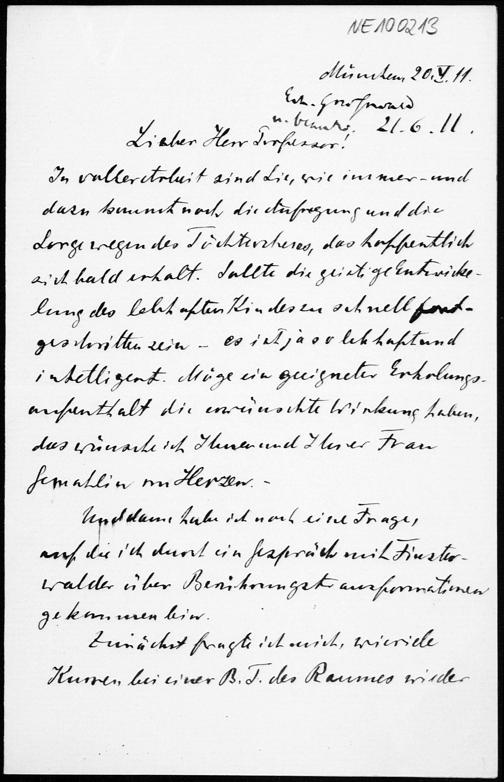 NE100213
München, 20. V. 11.
Erh. Greifswald
u. beantw. 21.6.11.
Lieber Herr Professor!
In voller Arbeit sind Sie, wie immer – und
dazu kommt noch die Aufregung und die
Sorge wegen des Töchterchens, das hoffentlich
sich bald erholt. Sollte die geistige Entwicke-
lung des lebhaften Kindes zu schnell fort-
geschritten sein – es ist ja so lebhaft und
intelligent. Möge ein geeigneter Erholungs-
aufenthalt die erwünschte Wirkung haben,
das wünsche ich Ihnen und Ihrer Frau
Gemahlin von Herzen. –
Und dann habe ich noch eine Frage,
auf die ich durch ein Gespräch mit Finster-
walder über Berührungstransformationen
gekommen bin.
Zunächst fragte ich mich, wieviele
Kurven bei einer B. T. des Raumes wieder